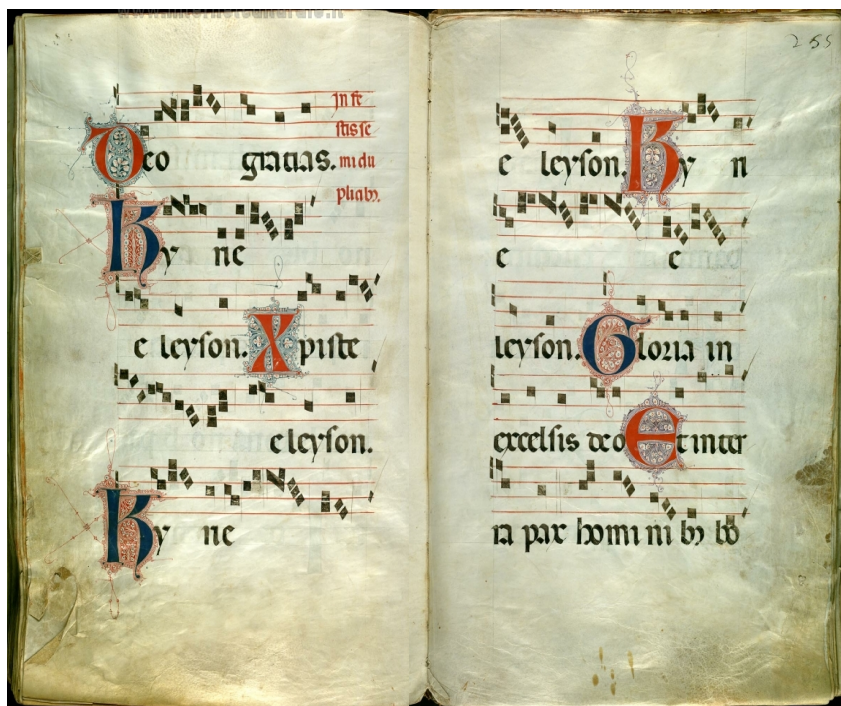 Deo gracias.
In fe
stis se
mi du
plicibȝ.
Ky rie
e leyson. Xpiste
eleyson.
Ky rie
255
e leyson. Ky ri
e e
leyson. Gloria in
excelsis deo Et in ter
ra pax homi ni bȝ bo